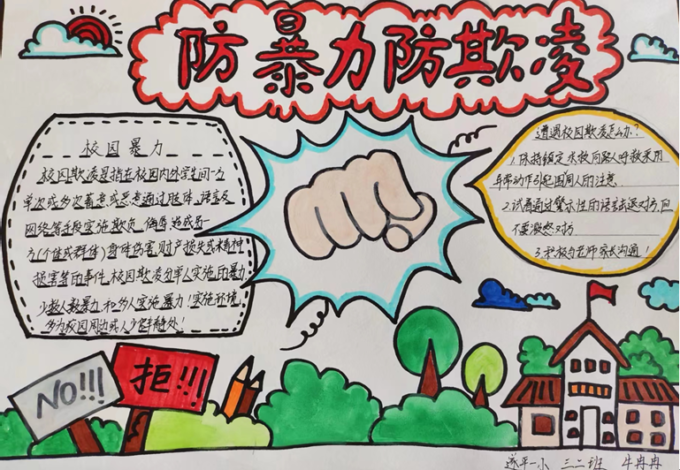 防暴力防欺凌
校园暴力
校园欺凌是指在校园内外学生间一方
单次或多次蓄意或恶意通过肢体、语言及
网络等手段实施欺负、侮辱造成另一
方(个体或群体)身体伤害、财产损失或精神
损害等的事件。校园欺凌分单人实施的暴力
少数人暴力和多人实施暴力!实施环境
多为校园周边或人少僻静处!
遭遇校园欺凌怎么办?
1.保持镇定求救向路人呼救采用
异常动作引起周围人的注意
2.试着通过警示性的语言击退对方,但
不要激怒对方
3.积极与老师家长沟通!
NO!!!
拒!!!
遂平一小 三二班 牛冉冉